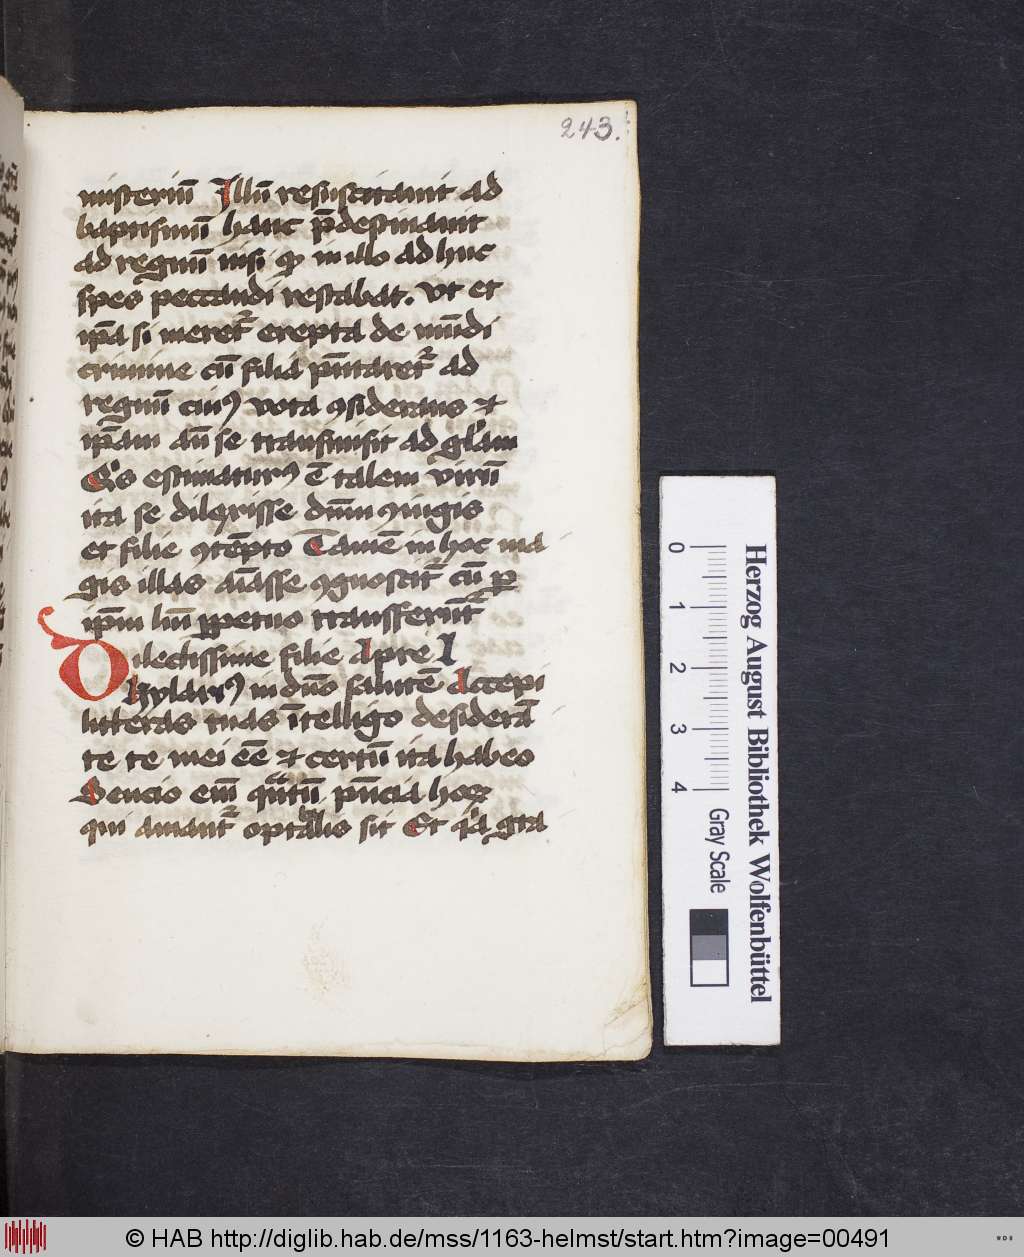 243.
misteriū Illū resuscitauit ad
baptismū hanc p̄destinauit
ad regnū nisi qꝫ in illo adhuc
spes peccandi restabat. vt et
ip̄a si meret᷑ erepta de mūdi
crimine cū filia p̄ntaret᷑ ad
regnū cuiꝰ vota ꝯsiderans ⁊
ip̄am an̄ se transmisit ad gl̄am
Qͥs estimaturꝰ ē talem virū
ita se dilexisse dūm ꝯiugis
et filie ꝯtēpto Tamē in hoc ma
gis illas amasse ꝯgnoscit᷑ cū ꝑ
ip̄m hūi ꝑpetuo transferūt᷑
Dilectissime filie Apre I
hylariꝰ in dn̄o salutē Accepi
litteras tuas ītelligo desiderā
te te mei eē ⁊ certū ita habeo
Sencio eīm q̄ntū p̄ncia hoꝝ
qui amant᷑ optabilis sit Et qͥa gra
Herzog August Bibliothek Wolfenbüttel
0 1 2 3 4
Gray Scale
© HAB http://diglib.hab.de/mss/1163-helmst/start.htm?image=00491